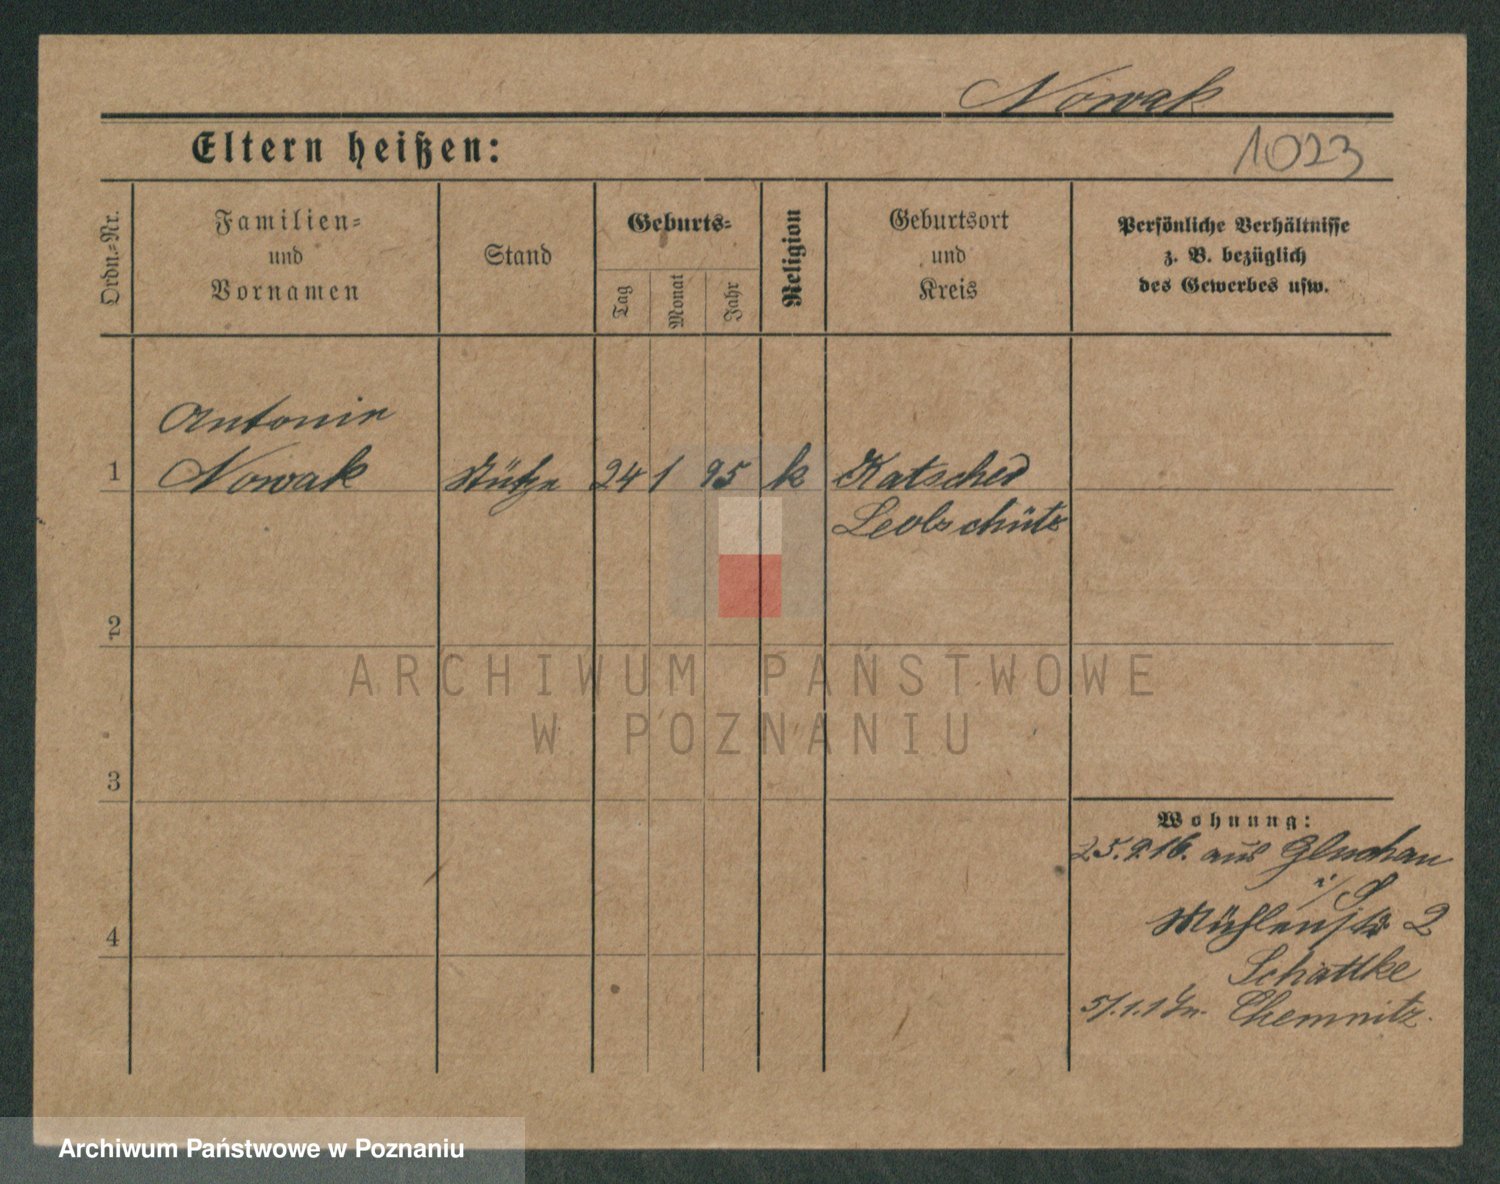 Nowak
Eltern heißen:
1023
Ordn.=Nr.
Familien=
und
Vornamen
Stand
Geburts=
Tag
Monat
Jahr
Religion
Geburtsort
und
Kreis
Persönliche Verhältnisse
z. B. bezüglich
des Gewerbes usw.
Antonie
1 Nowak Stütze 24 1 95 k Katscher
Leobschütz
2
3
4
Wohnung:
25.9.16. aus
i/S
Mühlenstr 2
Schattke
Chemnitz.
ARCHIWUM PAŃSTWOWE
W POZNANIU
Archiwum Państwowe w Poznaniu